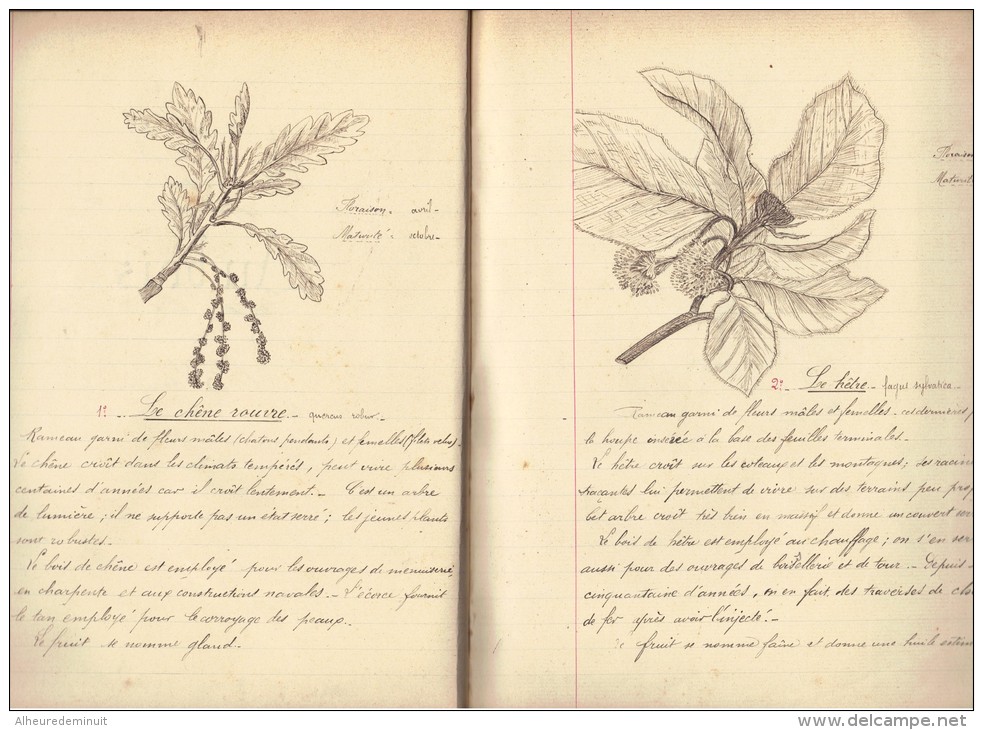 Floraison. avril-
Maturité: octobre-
1º - Le chêne rouvre - quercus robur -
Rameau garni de fleurs mâles (chatons pendants) et femelles
Le chêne croît dans les climats tempérés, peut vivre plusieurs
centaines d'années car il croît lentement. - C'est un arbre
de lumière; il ne supporte pas un état serré; les jeunes plants
sont robustes -
Le bois de chêne est employé pour les ouvrages de menuiserie,
en charpente et aux constructions navales. - L'écorce fournit
le tan employé pour le corroyage des peaux. -
Le fruit se nomme gland. -
Floraison
Maturité
2º - Le hêtre - fagus sylvatica -
Rameau garni de fleurs mâles et femelles - ces dernières
la houpe insérée à la base des feuilles terminales. -
Le hêtre croît sur les coteaux et les montagnes; ses racin
traçantes lui permettent de vivre sur des terrains peu prof
Cet arbre croît très bien en massif et donne un couvert ser
Le bois de hêtre est employé au chauffage; on s'en ser
aussi pour des ouvrages de boissellerie et de tour. - Depuis
cinquantaine d'années, on en fait des traverses de che
de fer après avoir l'injecté. -
Le fruit se nomme faîne et donne une huile estim
Alheuredeminuit
www.delcampe.net